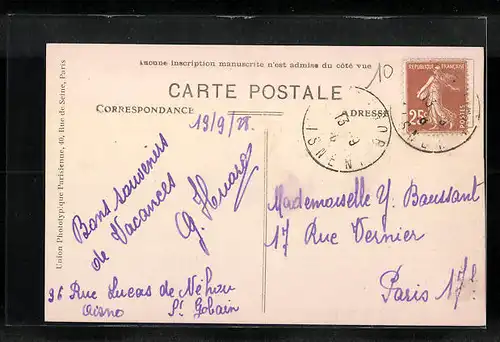 Aucune inscription manuscrite n'est admise du côté vue
CARTE POSTALE
CORRESPONDANCE
ADRESSE
Union Phototypique Parisienne, 40, Rue de Seine, Paris
10
19/9/28.
Bons souvenirs
de Vacances
96 Rue Lucas de Néhou
Aisne St Gobain
RÉPUBLIQUE FRANÇAISE
25
POSTES
Mademoiselle Y. Baussant
17 Rue Vernier
Paris 17e